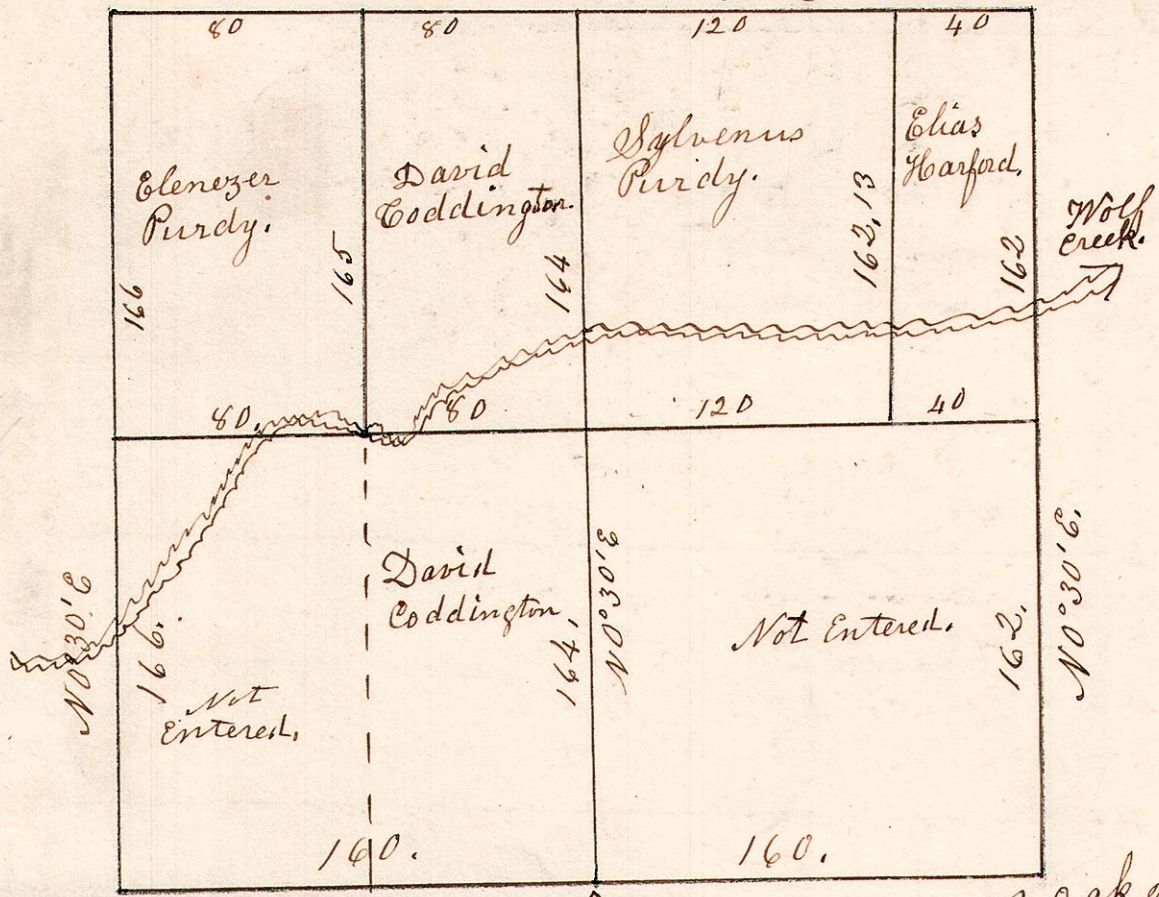 80 80 120 40
Ebenezer
Purdy.
David
Coddington.
Sylvenus
Purdy.
Elias
Harford.
Wolf
Creek.
166
165
164
162,13
162
80. 80 120 40
N 0°30' E
166.
Not
Entered.
David
Coddington,
164,
N 0°30' E
Not Entered.
162.
N 0°30' E.
160. 160.